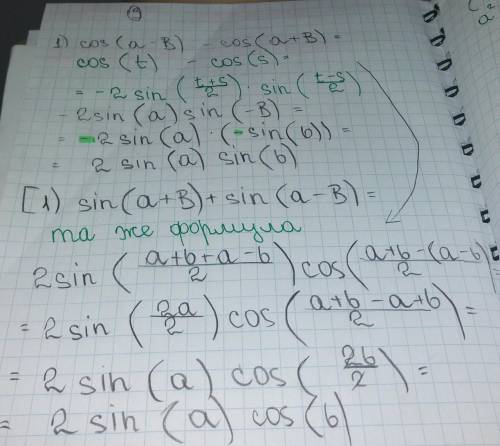 9
1) cos(a-B) - cos(a+B)=
cos(t) - cos(s)=
= -2 sin (t+s/2) · sin (t-s/2)
-2sin(a)sin(-B)=
= -2sin(a)·(-sin(b))=
= 2 sin(a) sin(b)
[1) sin(a+B)+sin(a-B)=
та же формула
2sin (a+b+a-b/2) cos(a+b-(a-b)/2)=
= 2 sin (2a/2) cos (a+b-a+b/2)=
= 2 sin (a) cos (2b/2)=
= 2 sin (a) cos(b)